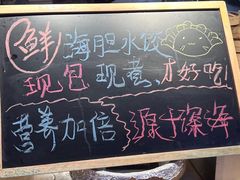 鲜 海胆水饺
现包 现煮,才好吃!
营养加倍 源于深海